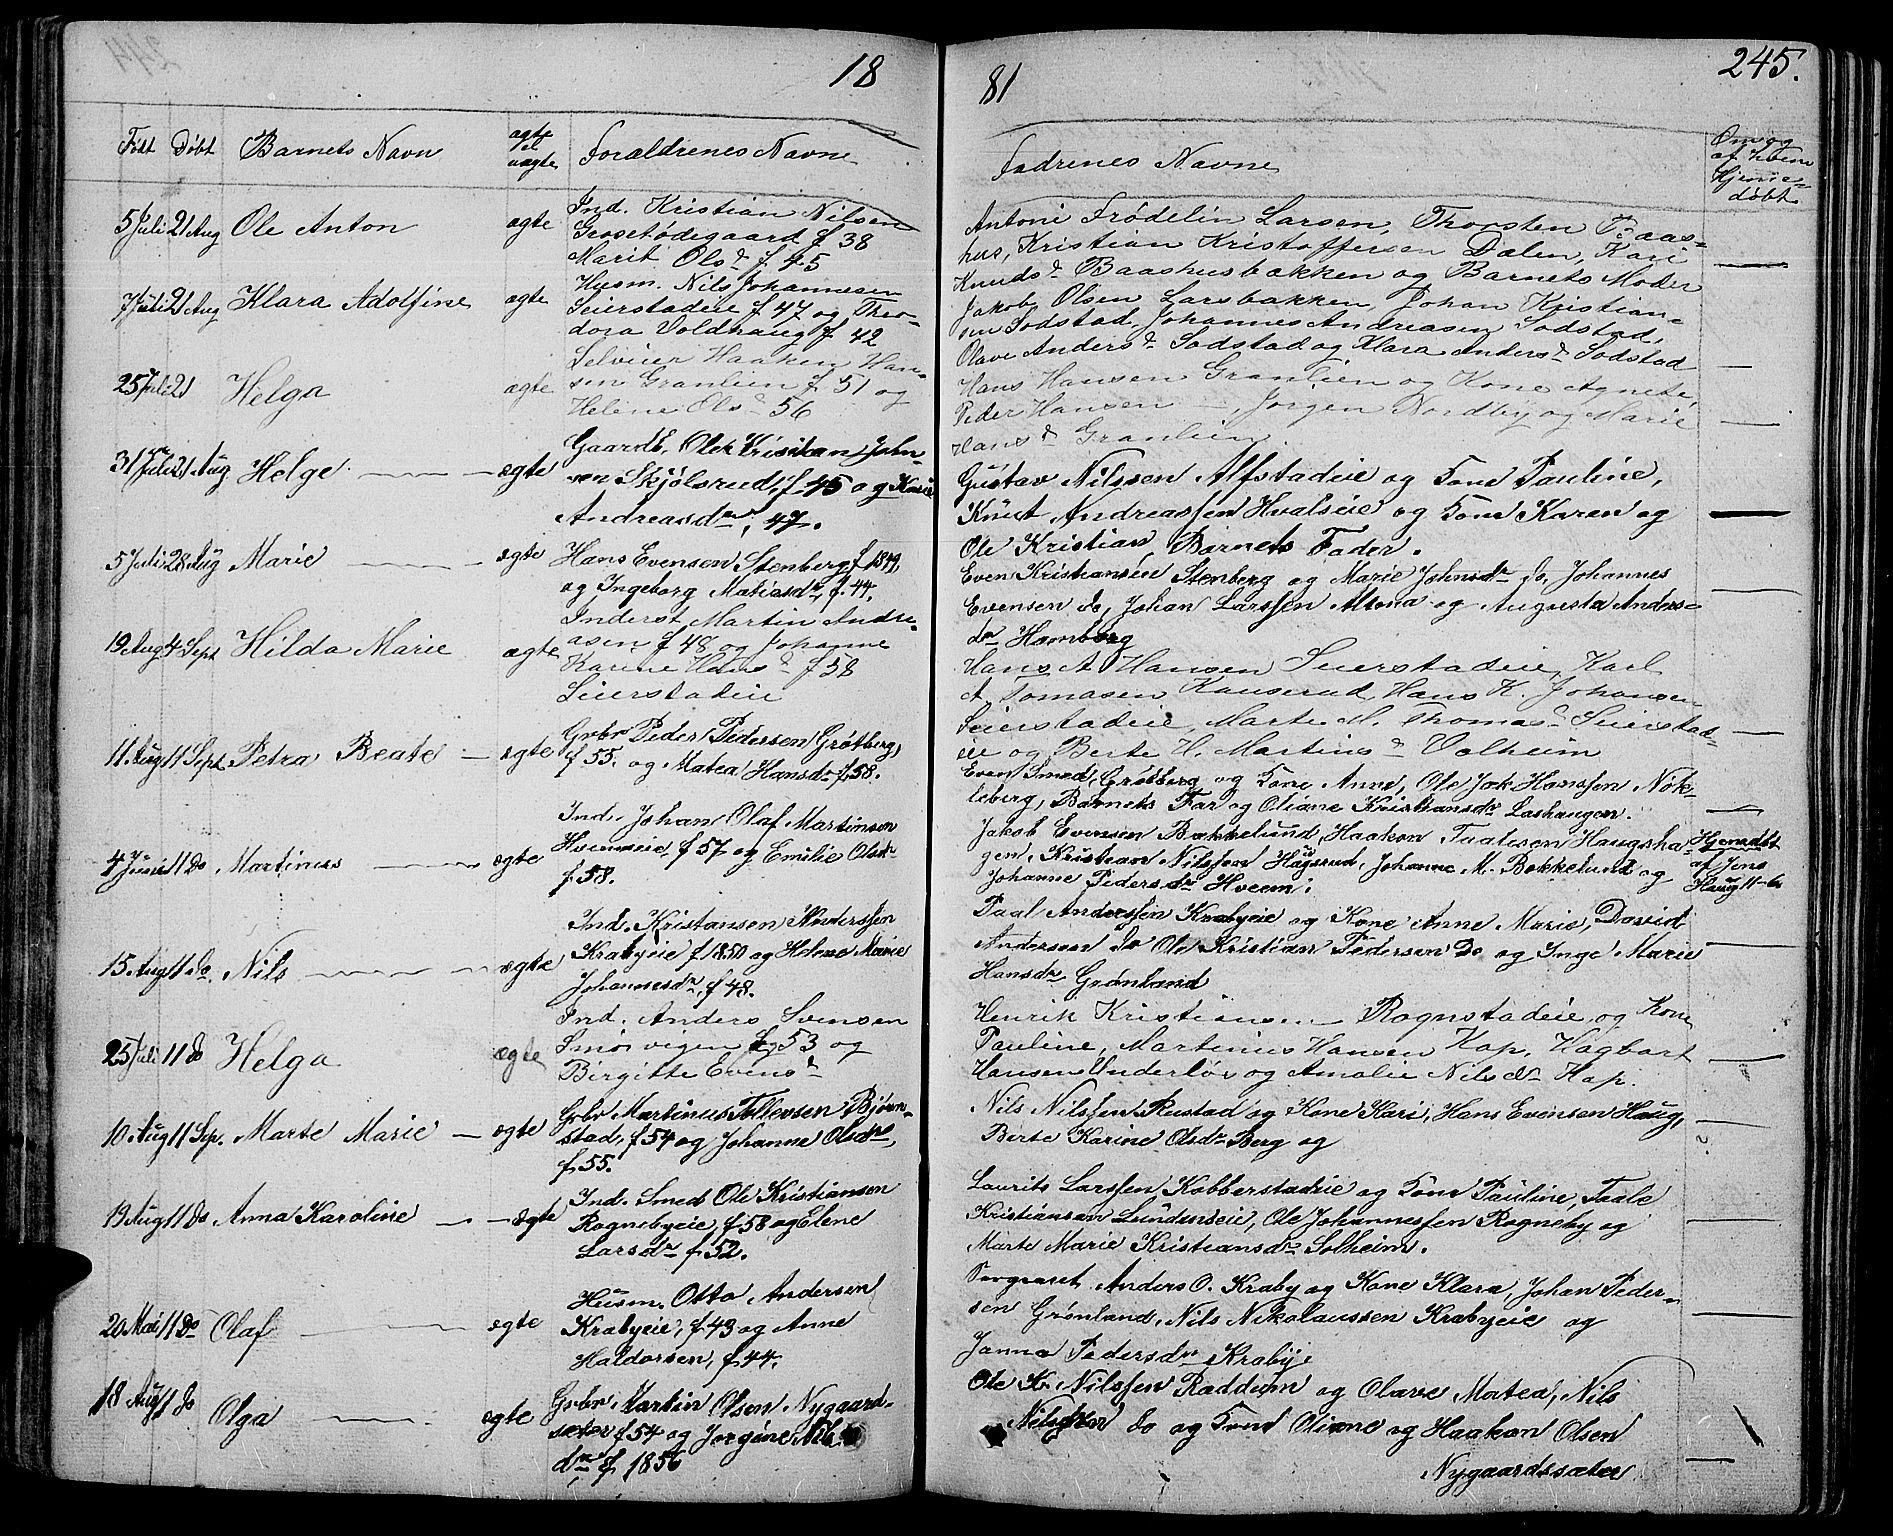 18
Født Døbt Barnets Navn ægte el uægte Forældrenes Navne
5 Juli 21 Aug Ole Anton ægte Ind. Kristian Nilsen
Grosetødegaard f 38
Marit Olsd. f. 45
7 Juli 21 Aug Klara Adolfine ægte Husm. Nils Johannesen
Seierstadeie f 47 og Theo-
dora Voldhaug f 42
25 Juli 21 Helga ægte Selveier Haaken Han-
sen Granlien f 51 og
Helene Olsd 56
31 Juli 21 Aug Helge ægte Gaardb. Ole Kristian John-
sen Skjølsrud, f. 45 og Kari
Andreasdr, 47.
5 Juli 28 Aug Marie ægte Hans Evensen Stenberg f 1849,
og Ingeborg Matiasdr, f. 44.
19 Aug 4 Sept Hilda Marie ægte Inderst Martin Andre-
asen f 48 og Johanne
Karine Hansd f 58
Seierstadeie
11 Aug 11 Sept Petra Beate ægte Gvbr Peder Pedersen Grøtberg,
f 55. og Matea Hansdr f 58.
4 Juni 11 Do Martinus ægte Ind. Johan Olaf Martinsen
Hvemseie, f 57 og Emilie Olsdr
f 58.
15 Aug 11 do. Nils ægte Ind. Kristansen Anderssen
Krabyeie f 1850 og Helene Marie
Johannesdr, f 48.
25 Juli 11 do Helga ægte Ind. Anders Svensen
Smørvegen f 53 og
Birgitte Evensd
10 Aug 11 Sep. Marte Marie ægte Gvbr Martinus Tollevsen Bjørn-
stad, f 54 og Johanne Olsdr,
f. 55.
19 Aug 11 do Anna Karoline ægte Ind. Smed Ole Kristiansen
Rognebyeie, f 58 og Elene
Larsdr f. 52.
20 Mai 11 do Olaf ægte Husm. Otto Andersen
Krabyeie, f 43 og Anne
Haldorsen, f 44.
18 Aug 11 do Olga ægte Gvbr Martin Olsen Nygaard-
sæter f 54 og Jørgine Nils
dr f 1856
81 245.
Fadrenes Navne Om og af hvem Hjemme-døbt
Antoni Frødelin Larsen, Thorsten Baas-
hus, Kristian Kristoffersen Dalen, Kari
Knudsd Baashusbakken og Barnets Moder
Jakob Olsen Larsbakken, Johan Kristian-
sen Sodstad, Johannes Andreasen Sodstad,
Olave Andersd Sodstad og Klara Andersd Sodstad
Hans Hansen Granlien og Kone Agnete,
Peder Hansen —, Jørgen Nordby og Marie
Hansd Granlien
Gustav Nilssen Alfstadeie og Kone Pauline,
Knut Andreassen Hvalseie og Kone Karen og
Ole Kristian, Barnets Fader.
Even Kristiansen Stenberg og Marie Johnsdr do, Johannes
Evensen do, Johan Larssen Altona og Augusta Anders-
dr Hamberg
Hans A Hansen Seierstadeie, Karl
A Tomasen Kauserud, Hans K. Johansen
Seierstadeie, Marte M. Thomasd Seierstad-
eie og Berte H. Martinsd Volheim
Even Smed, Grøtberg og Kone Anne, Ole Jak Hanssen Nøk-
leberg, Barnets Far og Oliane Kristiansdr Lashaugen.
Jakob Evensen Bakkelund, Haakon Taalesen Haugsha-
gen, Kristian Nilssen Hagsrud, Johanne M. Bakkelund og
Johanne Pedersdr Hveem.
Hjemdøbt
af Jens
Haug 11-6
Paal Anderssen Krabyeie og Kone Anne Marie, David
Andersen do Ole Kristian Pedersen Do og Inge Marie
Hansdr Grønland
Henrik Kristians... Rognstadeie og Kone
Pauline, Martinus Hansen Kap, Hagbart
Hansen Underlør og Amalie Nilsdr Hap.
Nils Nilssen Rustad og Kone Kari, Hans Evensen Haug,
Berte Karine Olsdr Berg og
Laurits Larssen Kobberstadeie og Kone Pauline, Taale
Kristiansen Lundenseie, Ole Johannessen Rogneby og
Marte Marie Kristiansdr Solheim.
Sergeant Anders O. Kraby og Kone Klara, Johan Peder-
sen Grønland, Nils Nikolaussen Krabyeie og
Janna Pedersdr Kraby.
Ole K. Nilssen Raddum og Olave Matea, Nils
Nilssen do og Kone Oliane og Haakon Olsen
Nygaardssæter